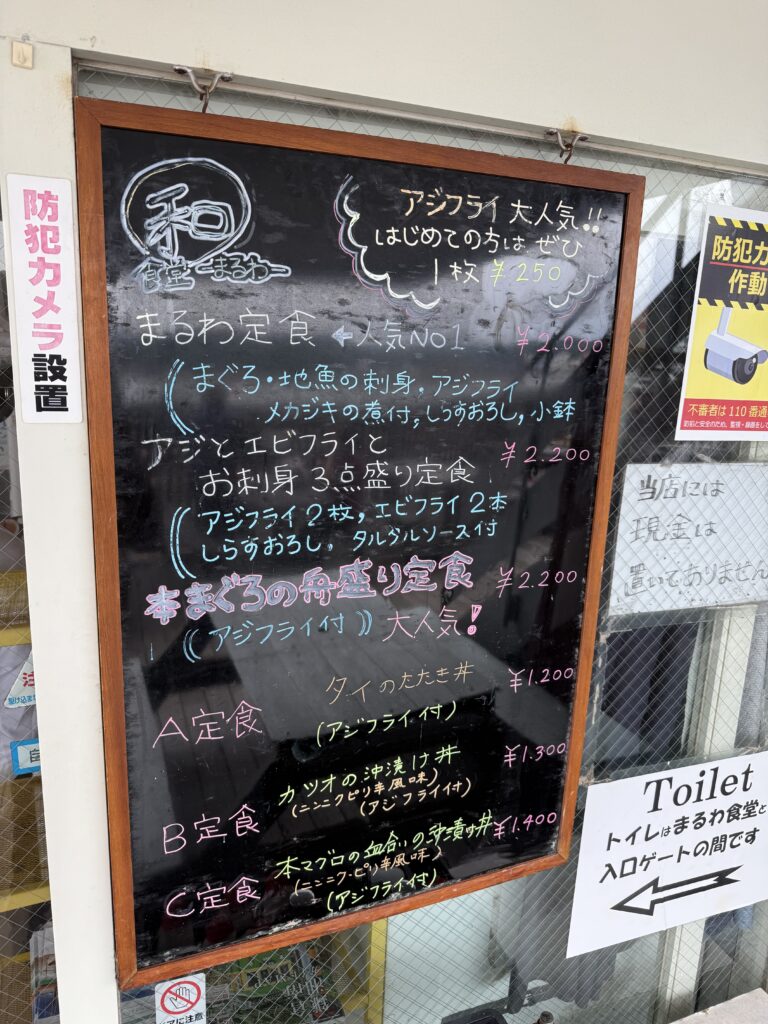 防犯カメラ設置
和
食堂 ~まるわ~
アジフライ大人気!!
はじめての方は ぜひ
1枚 ¥250
まるわ定食 ←人気No1 ¥2.000
(まぐろ・地魚の刺身, アジフライ
メカジキの煮付, しらすおろし, 小鉢
アジとエビフライと ¥2.200
お刺身3点盛り定食
(アジフライ2枚, エビフライ2本
しらすおろし, タルタルソース付
本まぐろの舟盛り定食 ¥2.200
((アジフライ付)) 大人気!
A定食 タイのたたき丼 ¥1.200
(アジフライ付)
B定食 カツオの沖漬け丼 ¥1.300
(ニンニクピリ辛風味)
(アジフライ付)
C定食 本マグロの血合いの沖漬け丼 ¥1.400
(ニンニク・ピリ辛風味)
(アジフライ付)
防犯カ
作動
不審者は110番通
当店には
現金は
置いてありません
Toilet
トイレはまるわ食堂と
入口ゲートの間です
注
駆け込ま
アに注意